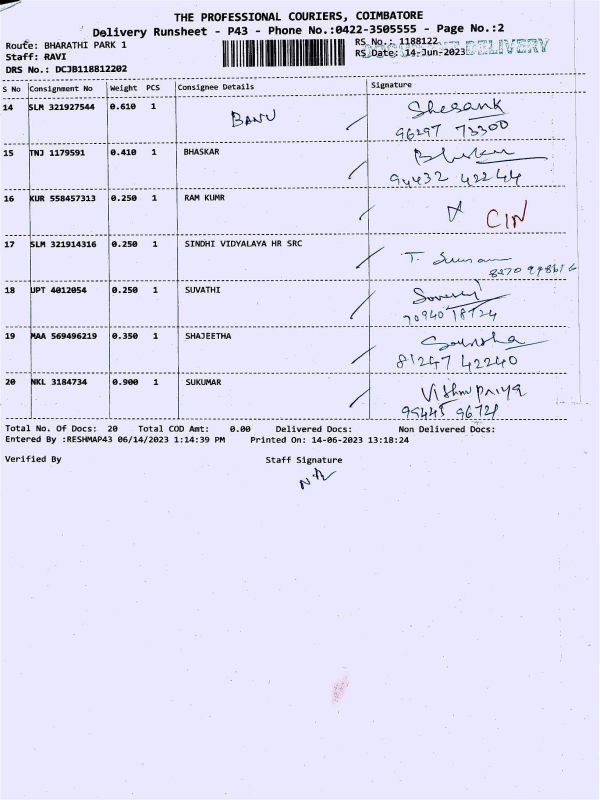 THE PROFESSIONAL COURIERS, COIMBATORE
Delivery Runsheet - P43 - Phone No.:0422-3505555 - Page No.:2
Route: BHARATHI PARK 1
RS No.: 1188122
Staff: RAVI
RS Date: 14-Jun-2023
DELIVERY
DRS No.: DCJB118812202
S No Consignment No Weight PCS Consignee Details Signature
14 SLM 321927544 0.610 1 BANU Shesank
96297 73300
15 TNJ 1179591 0.410 1 BHASKAR
94432 42244
16 KUR 558457313 0.250 1 RAM KUMR
CIN
17 SLM 321914316 0.250 1 SINDHI VIDYALAYA HR SRC
T.
18 UPT 4012054 0.250 1 SUVATHI
70940 18724
19 MAA 569496219 0.350 1 SHAJEETHA
81247 42240
20 NKL 3184734 0.900 1 SUKUMAR Vishnupriya
Total No. Of Docs: 20 Total COD Amt: 0.00 Delivered Docs: Non Delivered Docs:
Entered By :RESHMAP43 06/14/2023 1:14:39 PM Printed On: 14-06-2023 13:18:24
Verified By Staff Signature